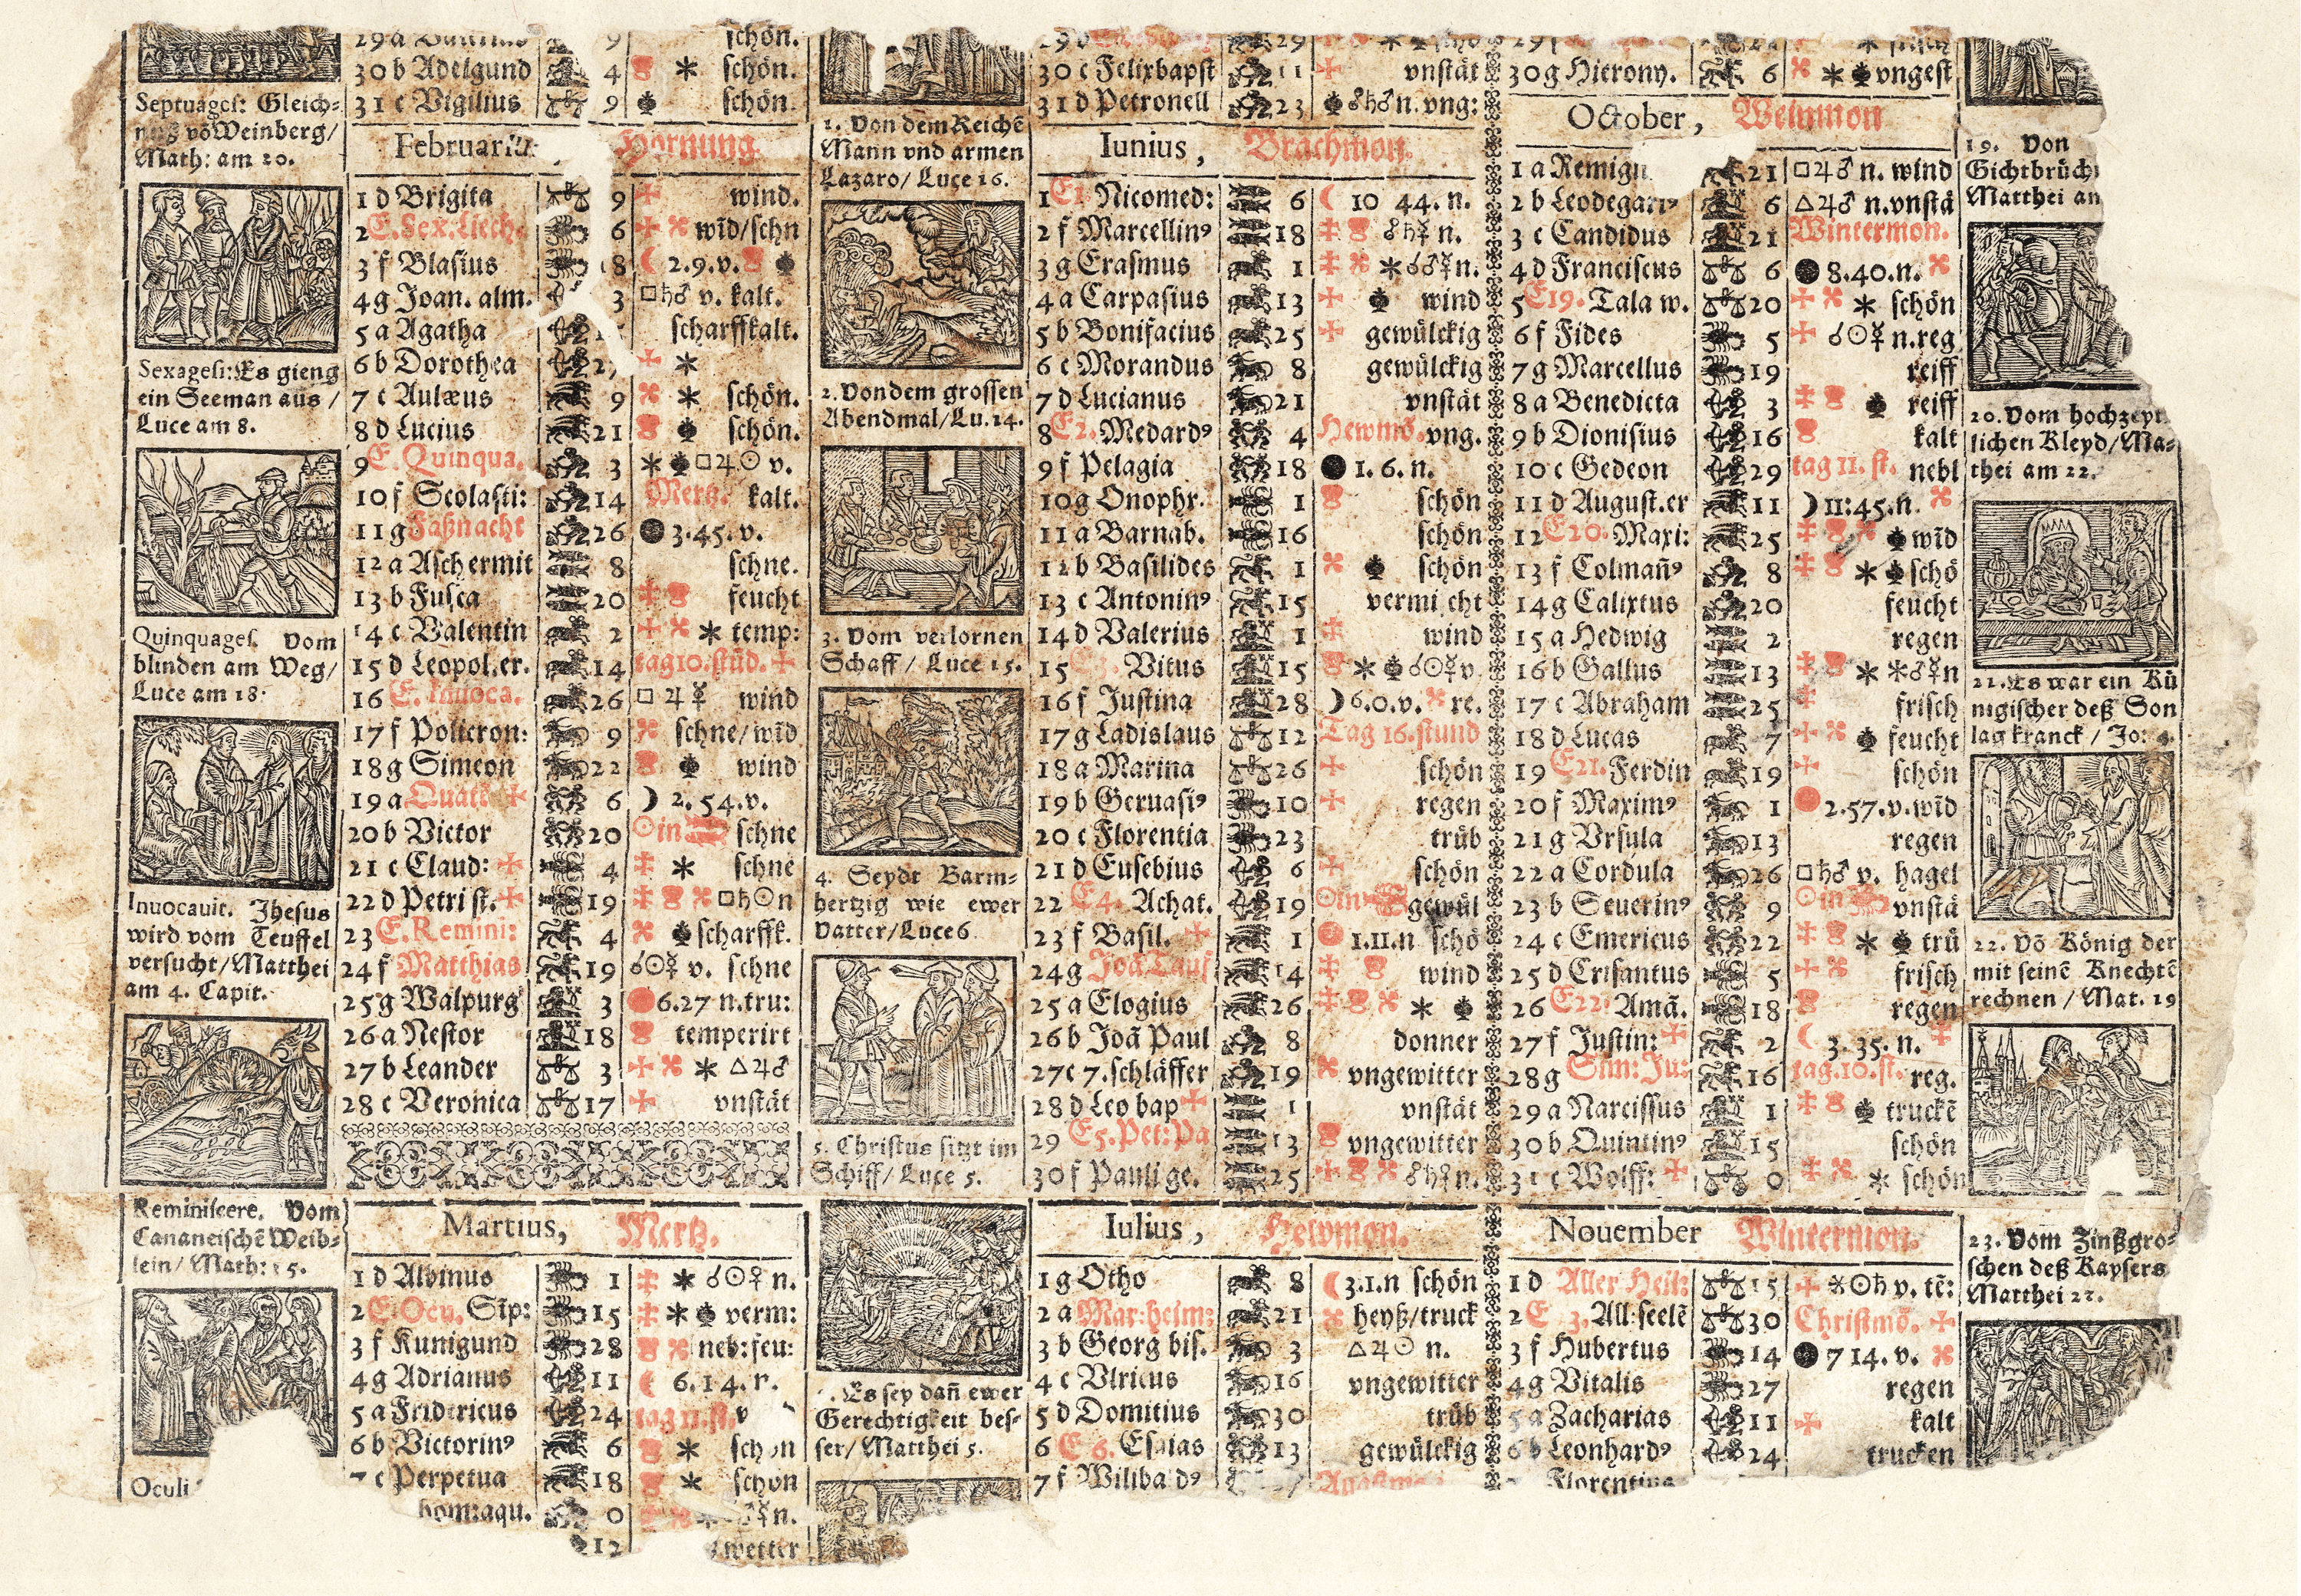 schön.
30 b Adelgund 4 * schön.
31 c Vigilius 9 schön.
Septuages: Gleich=
nuß võ Weinberg/
Math: am 20.
Hornung.
1 d Brigita 9 wind.
2 E. Sex. 6 wid/schn
3 f Blasius 2.9.v.
4 g Joan. alm. 3 □♄♂ v. kalt.
5 a Agatha scharffkalt.
6 b Dorothea *
7 c Aulæus 9 * schön.
8 d Lucius 21 schön.
9 E. Quinqua. 3 * □♃☉ v.
10 f Scolasti: 14 Mertz. kalt.
11 g Faßnacht 26 ● 3.45.v.
12 a Aschermit 8 schne.
13 b Fusca 20 feucht
14 c Valentin 2 * temp:
15 d Leopol.er. 14 tag 10. stũd.
16 E. Inuoca. 26 □♃☿ wind
17 f Policron: 9 schne/wid
18 g Simeon 22 wind
19 a Quat 6 ☽ 2.54.v.
20 b Victor 20 ☉in schne
21 c Claud: 4 * schne
22 d Petri st. 19 □♄☉n
23 E. Remini: 4 scharffk.
24 f Matthias 19 ☌☉☿ v. schne
25 g Walpurg 3 6.27 n.tru:
26 a Nestor 18 temperirt
27 b Leander 3 * △♃♂
28 c Veronica 17 vnstät
Sexagesi: Es gieng
ein Seeman aus /
Luce am 8.
Quinquages. Vom
blinden am Weg/
Luce am 18:
Inuocauit. Jhesus
wird vom Teuffel
versucht/Matthei
am 4. Capit.
Reminiscere. Vom
Cananeischẽ Weib=
lein/ Math: 15.
Oculi
Martius, Mertz.
1 d Albinus 1 * ☌☉♀ n.
2 E. Ocu. Sip: 15 * verm:
3 f Kunigund 28 neb:feu:
4 g Adrianus 11 6.14.
5 a Fridericus 24 tag 11. st.
6 b Victorin⁹ 6 *
7 c Perpetua 18 * schön
0
12 wetter
1. Von dem Reichẽ
Mann vnd armen
Lazaro/ Luce 16.
2. Von dem grossen
Abendmal/Lu.14.
3. Vom verlornen
Schaff/ Luce 15.
4. Seydt Barm=
hertzig wie ewer
Vatter/Luce 6.
5. Christus sitzt im
Schiff/ Luce 5.
Es sey dañ ewer
Gerechtigkeit bes=
ser/ Matthei 5.
30 c Felixbapst 11 vnstät
31 d Petronell 23 ☍♄♂n. vng:
Iunius, Brachmon.
1 E1. Nicomed: 6 ☾ 10 44. n.
2 f Marcellin⁹ 18 ☍♄☿ n.
3 g Erasmus 1 * ☌♂☿ n.
4 a Carpasius 13 wind
5 b Bonifacius 25 gewülckig
6 c Morandus 8 gewülckig
7 d Lucianus 21 vnstät
8 E2. Medard⁹ 4 Hewmõ. vng.
9 f Pelagia 18 ● 1. 6. n.
10 g Onophr. 1 schön
11 a Barnab. 16 schön
12 b Basilides 1 schön
13 c Antonin⁹ 15 vermischt
14 d Valerius 1 wind
15 Vitus 15 * ☌☉☿ v.
16 f Justina 28 ☽ 6.0.v. re.
17 g Ladislaus 12 Tag 16. stund
18 a Marina 26 schön
19 b Geruasi⁹ 10 regen
20 c Florentia 23 trüb
21 d Eusebius 6 schön
22 E4. Achat. 19 ☉in gewül
23 f Basil. 1 1.11.n schö
24 g Joã Tauf 14 wind
25 a Elogius 26 *
26 b Joã Paul 8 donner
27 c 7.schläffer 19 vngewitter
28 d Leo bap 1 vnstät
29 E5. Pet: Pa 13 vngewitter
30 f Pauli ge. 25 n.
Iulius, Hewmon.
1 g Otho 8 ☾3.1.n schön
2 a Mar: heim: 21 heyß/truck
3 b Georg bis. 3 △♃☉ n.
4 c Vlricus 16 vngewitter
5 d Domitius 30 trüb
6 E 6. Esaias 13 gewülckig
7 f Wilibald⁹
30 g Hierony. 6 * vngest
October, Weinmon
1 a Remigii 21 □♃♂ n. wind
2 b Leodegari⁹ 6 △♃♂ n.vnstä
3 c Candidus 21 Wintermon.
4 d Franciscus 6 ● 8.40.n.
5 E19. Tala w. 20 * schön
6 f Fides 5 ☌☉☿ n.reg
7 g Marcellus 19 reiff
8 a Benedicta 3 reiff
9 b Dionisius 16 kalt
10 c Gedeon 29 tag 11. st. nebl
11 d August.er 11 ☽ 11:45.n.
12 E20. Maxi: 25 wid
13 f Colmañ⁹ 8 * schö
14 g Calixtus 20 feucht
15 a Hedwig 2 regen
16 b Gallus 13 * *♂☿n
17 c Abraham 25 frisch
18 d Lucas 7 feucht
19 E21. Ferdin 19 schön
20 f Maxim⁹ 1 2.57.v.wid
21 g Vrsula 13 regen
22 a Cordula 26 □♄♂ v. hagel
23 b Seuerin⁹ 9 ☉in vnstä
24 c Emericus 22 * trü
25 d Crisantus 5 frisch
26 E22. Amã. 18 regen
27 f Justin: 2 ☾ 3.35.n.
28 g Sim: Ju: 16 tag.10.st. reg.
29 a Narcissus 1 truckẽ
30 b Quintin⁹ 15 schön
31 c Wolff: 0 * schön
Nouember Wintermon.
1 d Aller Heil: 15 *☉♄ v. tẽ:
2 E All:seelẽ 30 Christmõ.
3 f Hubertus 14 ● 7 14. v.
4 g Vitalis 27 regen
5 a Zacharias 11 kalt
6 b Leonhard⁹ 24 trucken
Florentina
19. Von
Gichtbrüch
Matthei an
20. Vom hochzeyt
lichen Kleyd/Ma=
thei am 22.
21. Es war ein Kü
nigischer deß Son
lag kranck / Jo: 4.
22. Võ König der
mit seinẽ Knechtẽ
rechnen / Mat. 19
23. Vom Zinßgro=
schen deß Kaysers
Matthei 22.